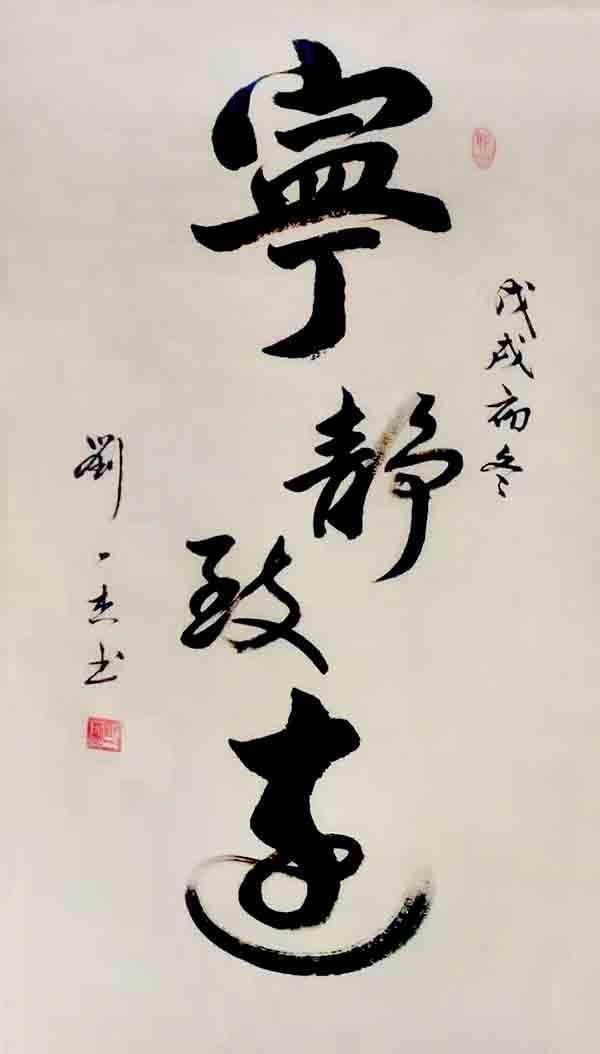 戊戌初冬
寧静致遠
劉一杰书